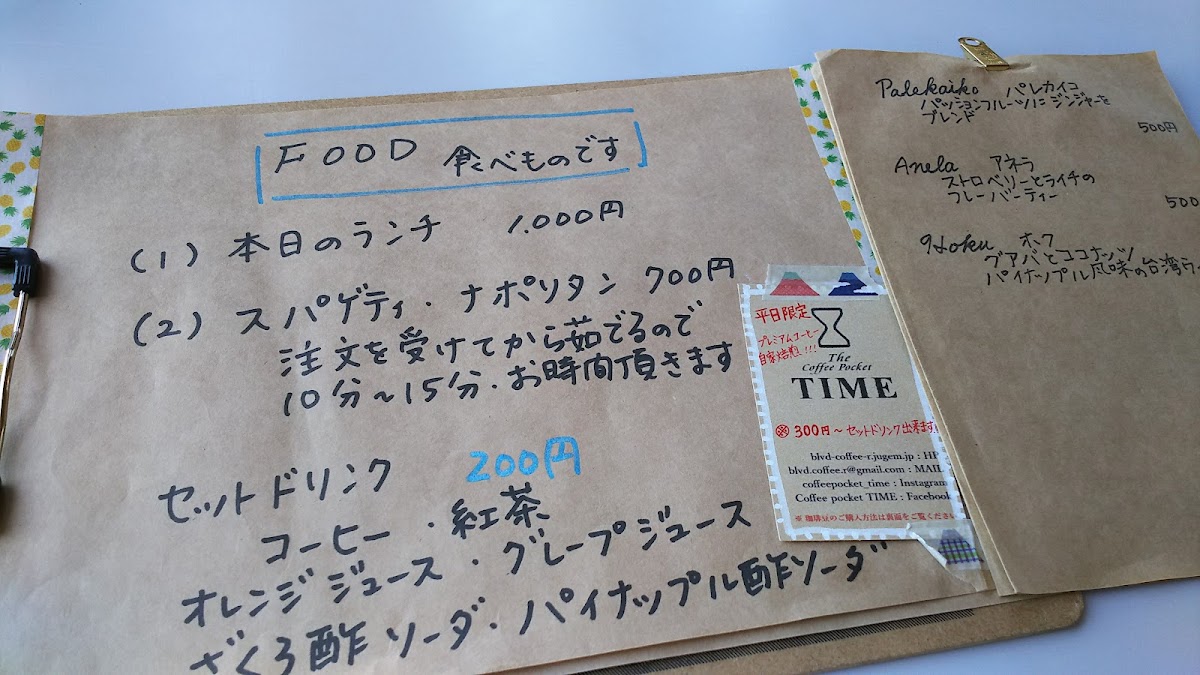 FOOD 食べものです
(1) 本日のランチ 1.000円
(2) スパゲティ・ナポリタン 700円
注文を受けてから茹でるので
10分〜15分・お時間頂きます
セットドリンク 200円
コーヒー・紅茶
オレンジジュース・グレープジュース
ざくろ酢ソーダ・パイナップル酢ソーダ
平日限定
プレミアムコーヒー
自家焙煎!!!
The
Coffee Pocket
TIME
※ 300円〜セットドリンク出来ます
blvd-coffee-r.jugem.jp : HP
blvd.coffee.r@gmail.com : MAIL
coffeepocket_time : Instagram
Coffee pocket TIME : Facebook
※ 珈琲豆のご購入方法は裏面をご覧ください
Palekaiko パレカイコ
パッションフルーツにジンジャーを
ブレンド
500円
Anela アネラ
ストロベリーとライチの
フレーバーティー
500
Hoku ホク
グアバとココナッツ
パイナップル風味の台湾ウー